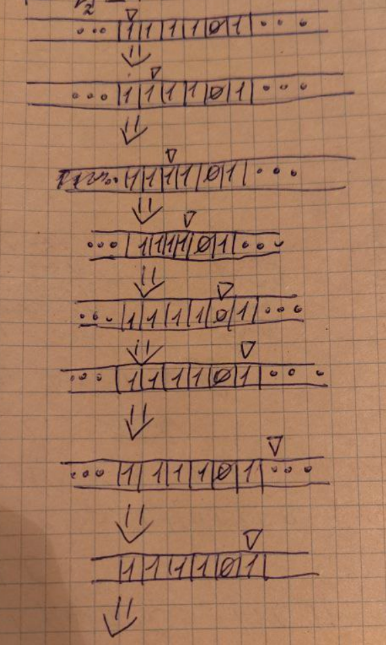 ... 1 1 1 1 0 1 ...
... 1 1 1 1 0 1 ...
1 1 1 1 0 1 ...
... 1 1 1 1 0 1 ...
... 1 1 1 1 0 1 ...
... 1 1 1 1 0 1 ...
... 1 1 1 1 0 1 ...
1 1 1 1 0 1